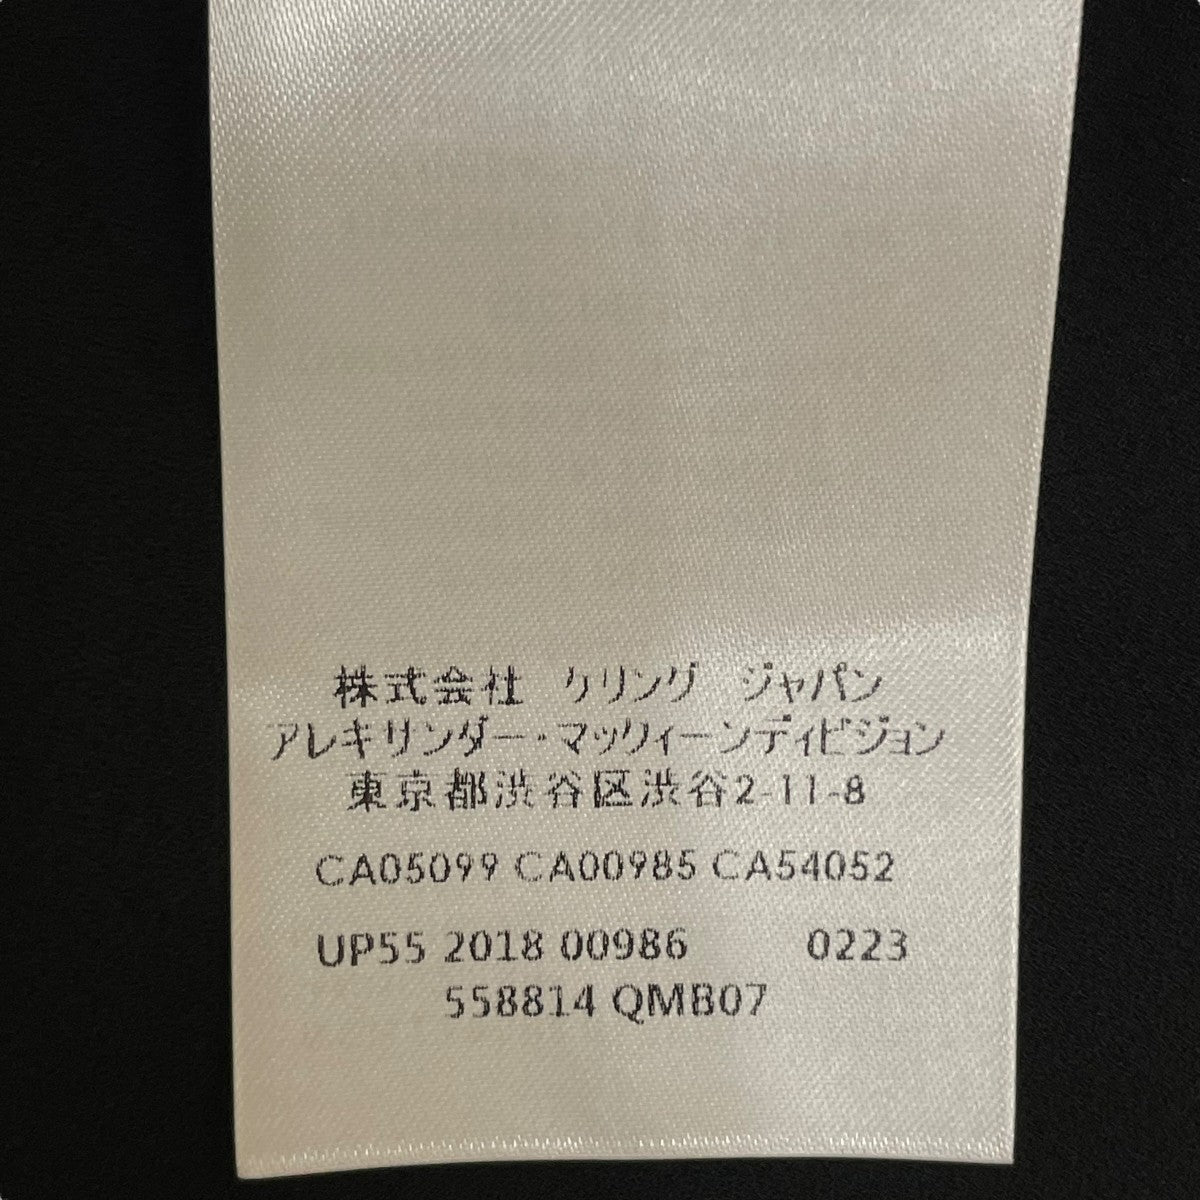 株式会社 ケリング ジャパン
アレキサンダー・マックィーンディビジョン
東京都渋谷区渋谷2-11-8
CA05099 CA00985 CA54052
UP55 2018 00986 0223
558814 QMB07